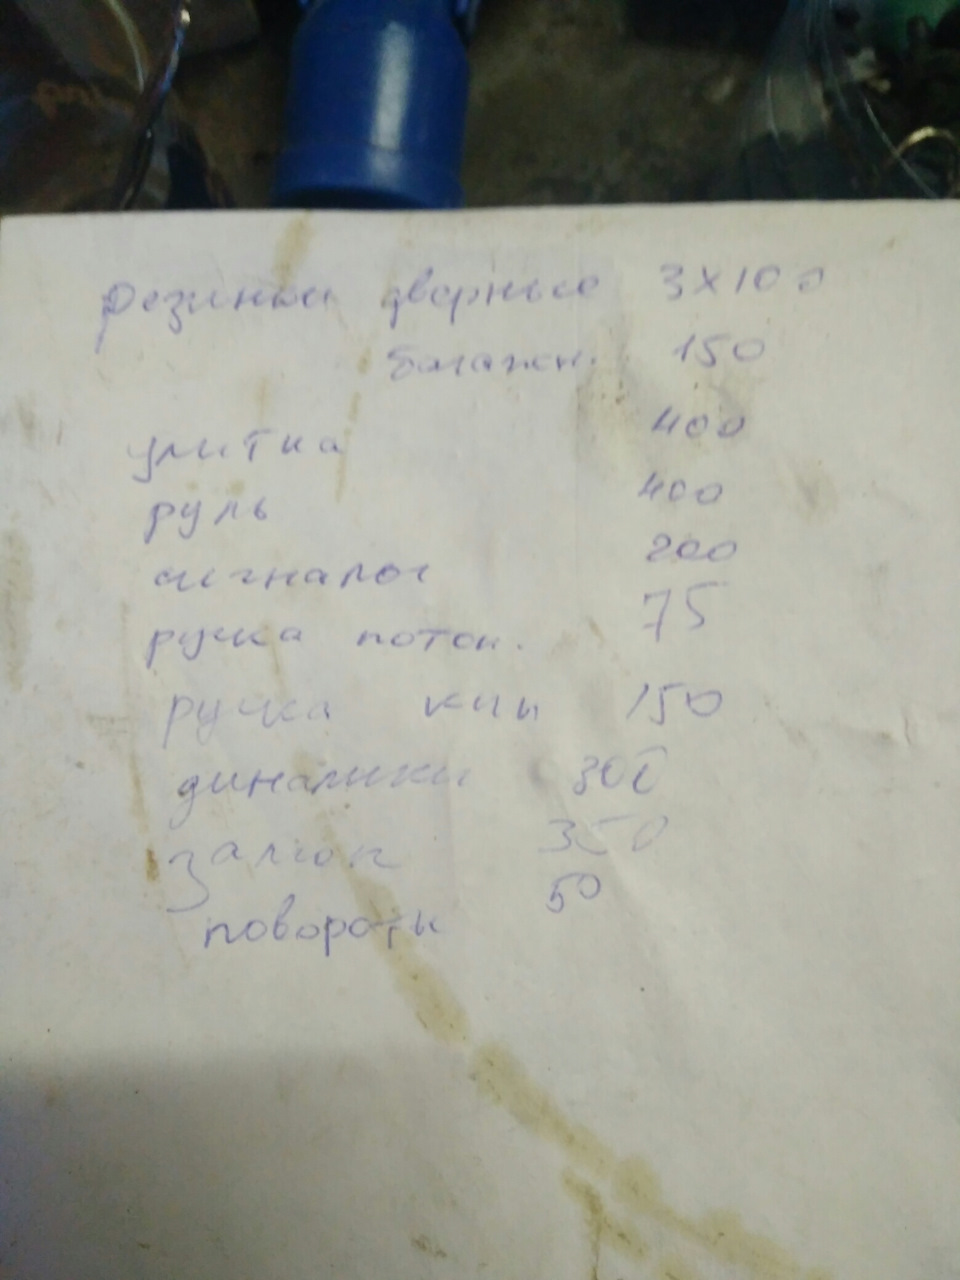 резинки дверные 3×100
багажн. 150
улитка 400
руль 400
сигналог 200
ручка поток. 75
ручка кпп 150
динамики 300
замок 350
повороты 50